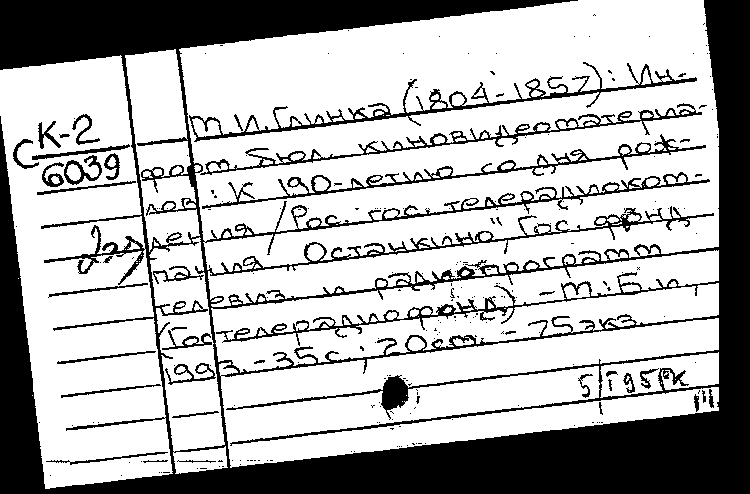 М.И.Глинка (1804-1857): Ин-
С К-2
6039
форм. бюл. киновидеоматериа-
лов: К 190-летию со дня рож-
дения / Рос. гос. телерадиоком-
пания „Останкино", Гос. фонд
телевиз. и радиопрограмм
(Гостелерадиофонд). - М.: Б.и.,
1993. - 35с.; 20см. - 75экз.
5/Г95РК